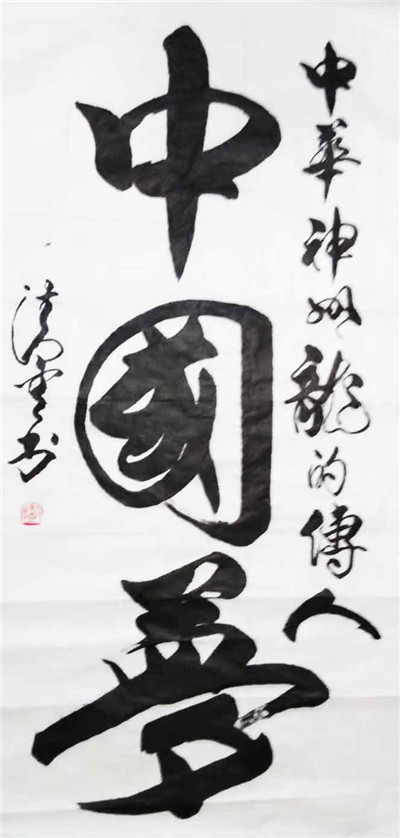 中華神州龍的傳人
中國夢
書